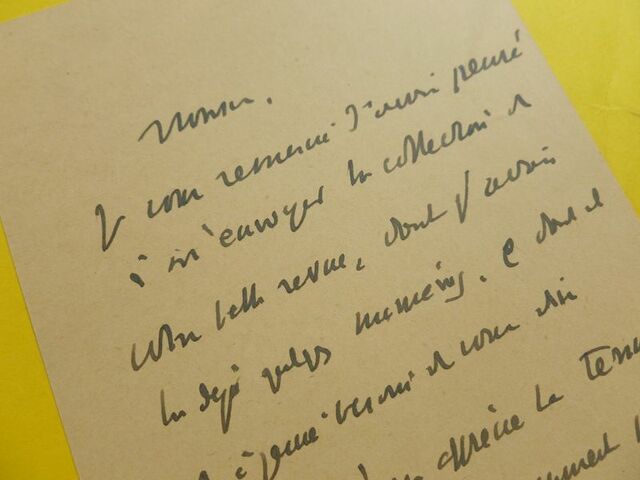 Monsieur,
Je vous remercie d'avoir pensé
à m'envoyer la collection de
votre belle revue, dont j'avais
lu déjà quelques numéros. et dont
à peine besoin de vous dire
la tenue